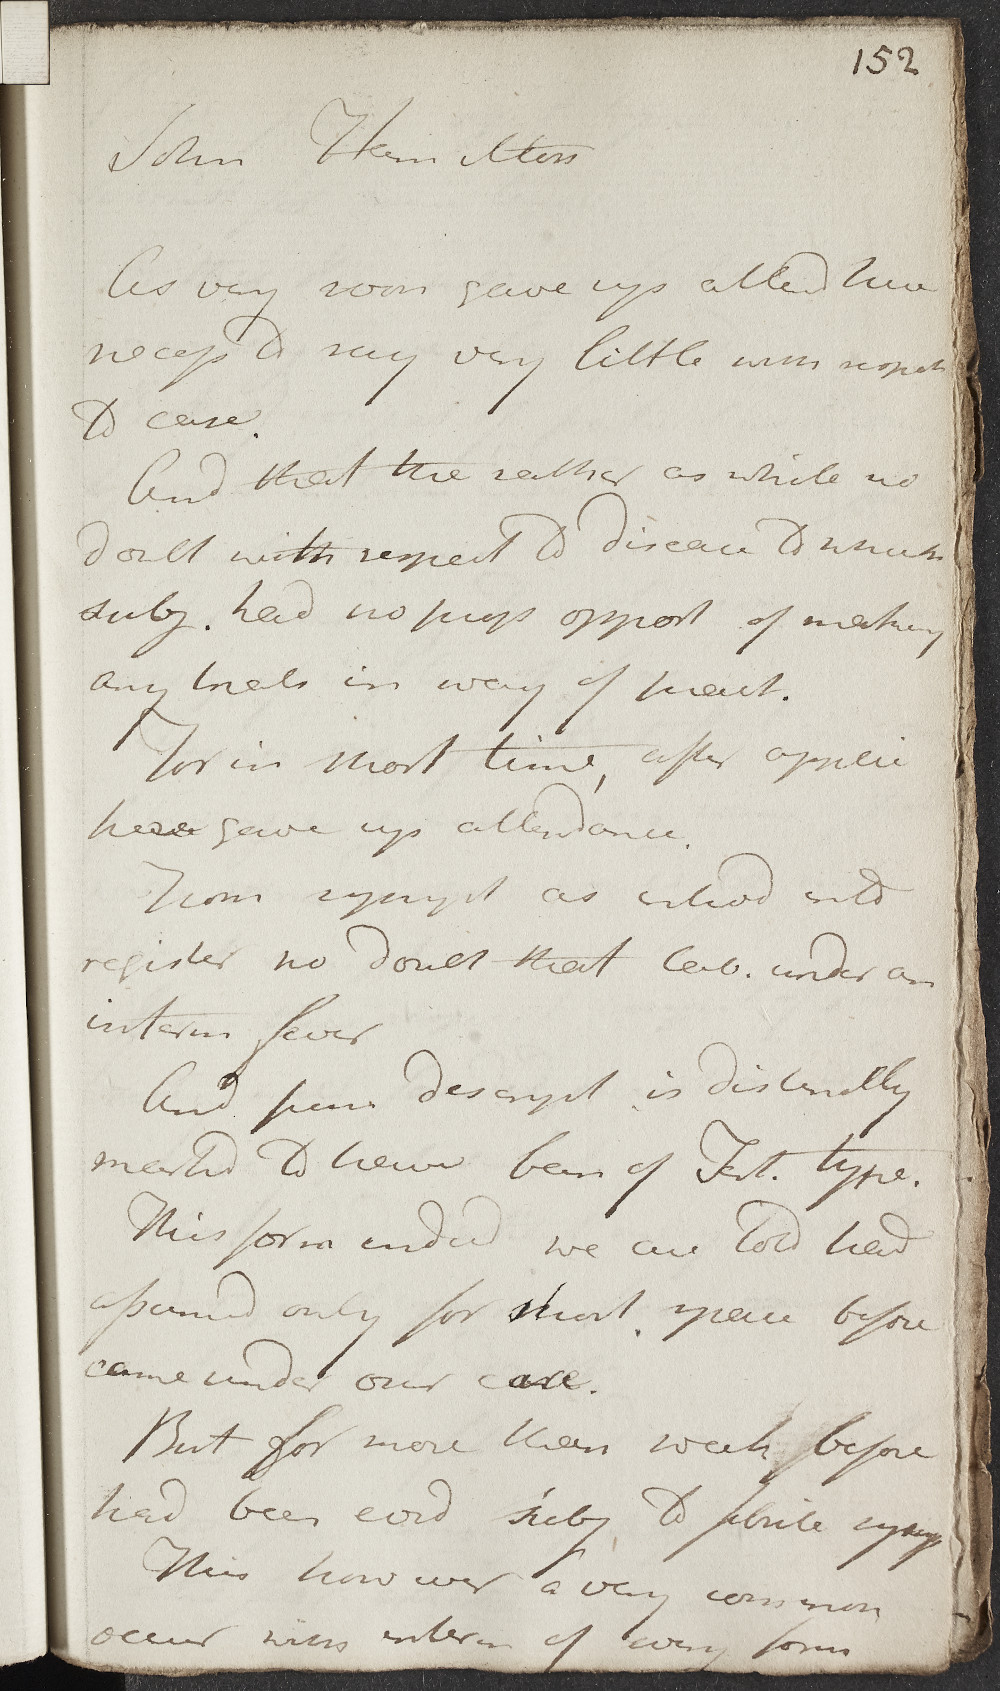 152
John Hamilton
As very soon gave up attend have
necess to say very little with respect
to case.
And that the rather as while no
doubt with respect to disease to which
subj. had no prop opport of making
any trials in way of pract.
For in short time, after applic
here gave up attendance.
From sympt as introd into
register no doubt that lab. under an
interm fever
And from descript is distinctly
marked to have been of Tert. type.
This form indeed we are told had
assumed only for short space before
came under our care.
But for more than week before
had been subj to febrile symp
This however a very common
occur with interm of every form